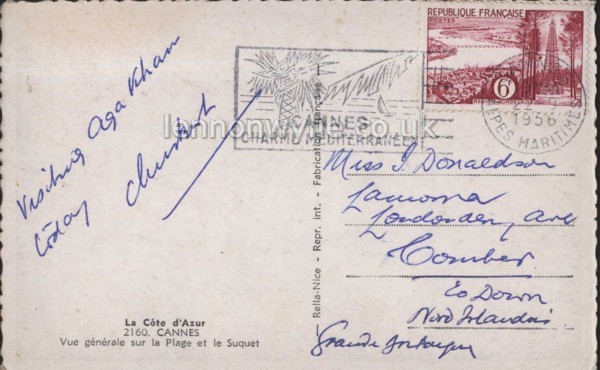 REPUBLIQUE FRANÇAISE
POSTES
6F
CANNES
CHARME MEDITERRANEEN
1956
ALPES MARITIMES
lennonwylie.co.uk
Visiting Aga Khan
today
Miss J Donaldson
Lamorna
Londonderry Ave
Comber
Co Down
Nord Irlandais
Grande Bretagne
Rella-Nice - Repr. int. - Fabrication française
La Côte d'Azur
2160. CANNES
Vue générale sur la Plage et le Suquet